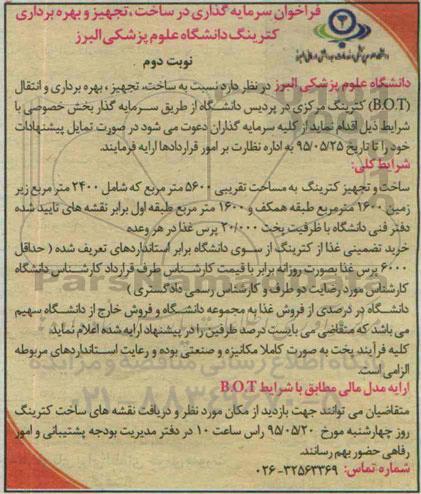 فراخوان سرمایه گذاری در ساخت، تجهیز و بهره برداری
کترینگ دانشگاه علوم پزشکی البرز
نوبت دوم
دانشگاه علوم پزشکی البرز در نظر دارد نسبت به ساخت، تجهیز، بهره برداری و انتقال
(B.O.T) کترینگ مرکزی در پردیس دانشگاه از طریق سرمایه گذار بخش خصوصی با
شرایط ذیل اقدام نماید از کلیه سرمایه گذاران دعوت می شود در صورت تمایل پیشنهادات
خود را تا تاریخ ۹۵/۰۵/۲۵ به اداره نظارت بر امور قراردادها ارایه فرمایند.
شرایط کلی:
ساخت و تجهیز کترینگ به مساحت تقریبی ۵۶۰۰ متر مربع که شامل ۲۴۰۰ متر مربع زیر
زمین ۱۶۰۰ مترمربع طبقه همکف و ۱۶۰۰ متر مربع طبقه اول برابر نقشه های تایید شده
دفتر فنی دانشگاه با ظرفیت پخت ۲۰/۰۰۰ پرس غذا در هر وعده
خرید تضمینی غذا از کترینگ از سوی دانشگاه برابر استانداردهای تعریف شده ( حداقل
۶۰۰۰ پرس غذا بصورت روزانه برابر با قیمت کارشناس طرف قرارداد کارشناس دانشگاه
کارشناس مورد رضایت دو طرف و کارشناس رسمی دادگستری )
دانشگاه در درصدی از فروش غذا به مجموعه دانشگاه و فروش خارج از دانشگاه سهیم
می باشد که متقاضی می بایست درصد طرفین را در پیشنهاد ارایه شده اعلام نماید.
کلیه فرآیند پخت به صورت کاملا مکانیزه و صنعتی بوده و رعایت استانداردهای مربوطه
الزامی است.
ارایه مدل مالی مطابق با شرایط B.O.T
متقاضیان می توانند جهت بازدید از مکان مورد نظر و دریافت نقشه های ساخت کترینگ
روز چهارشنبه مورخ ۹۵/۰۵/۲۰ راس ساعت ۱۰ در دفتر مدیریت بودجه پشتیبانی و امور
رفاهی حضور بهم رسانند.
شماره تماس: ۳۲۵۶۳۳۶۹-۰۲۶